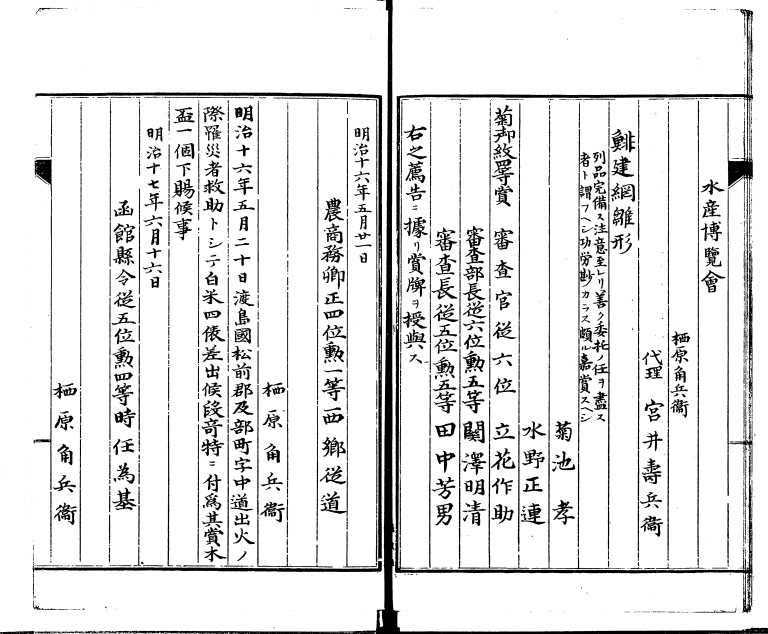 水産博覽會
栖原角兵衞
代理 宮井壽兵衞
鯡建網雛形
列品完備ス注意至レリ善ク委托ノ任ヲ盡ス
者ト謂フヘシ功労尠カラス頗ル嘉賞スヘシ
菊池 孝
水野正連
菊御紋署等賞 審査官從六位 立花作助
審査部長從六位勲五等 關澤明清
審査長從五位勲五等 田中芳男
右之薦告ニ據リ賞牌ヲ授與ス
明治十六年五月廿一日
農商務卿正四位勲一等西鄉從道
栖原角兵衞
明治十六年五月二十日渡島國松前郡及部町字中道出火ノ
際罹災者救助トシテ白米四俵差出候段竒特ニ付爲其賞木
盃一個下賜候事
明治十七年六月十六日
函館縣令從五位勲四等時任為基
栖原角兵衞